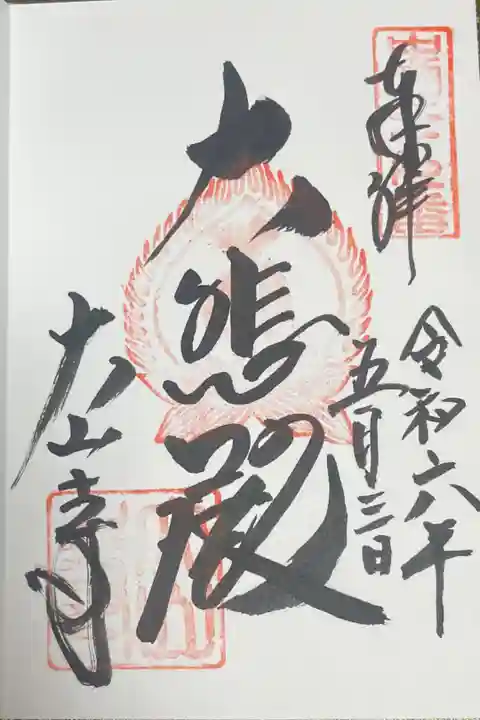 奉拝
令和六年
五月三日
大悲殿
大山寺